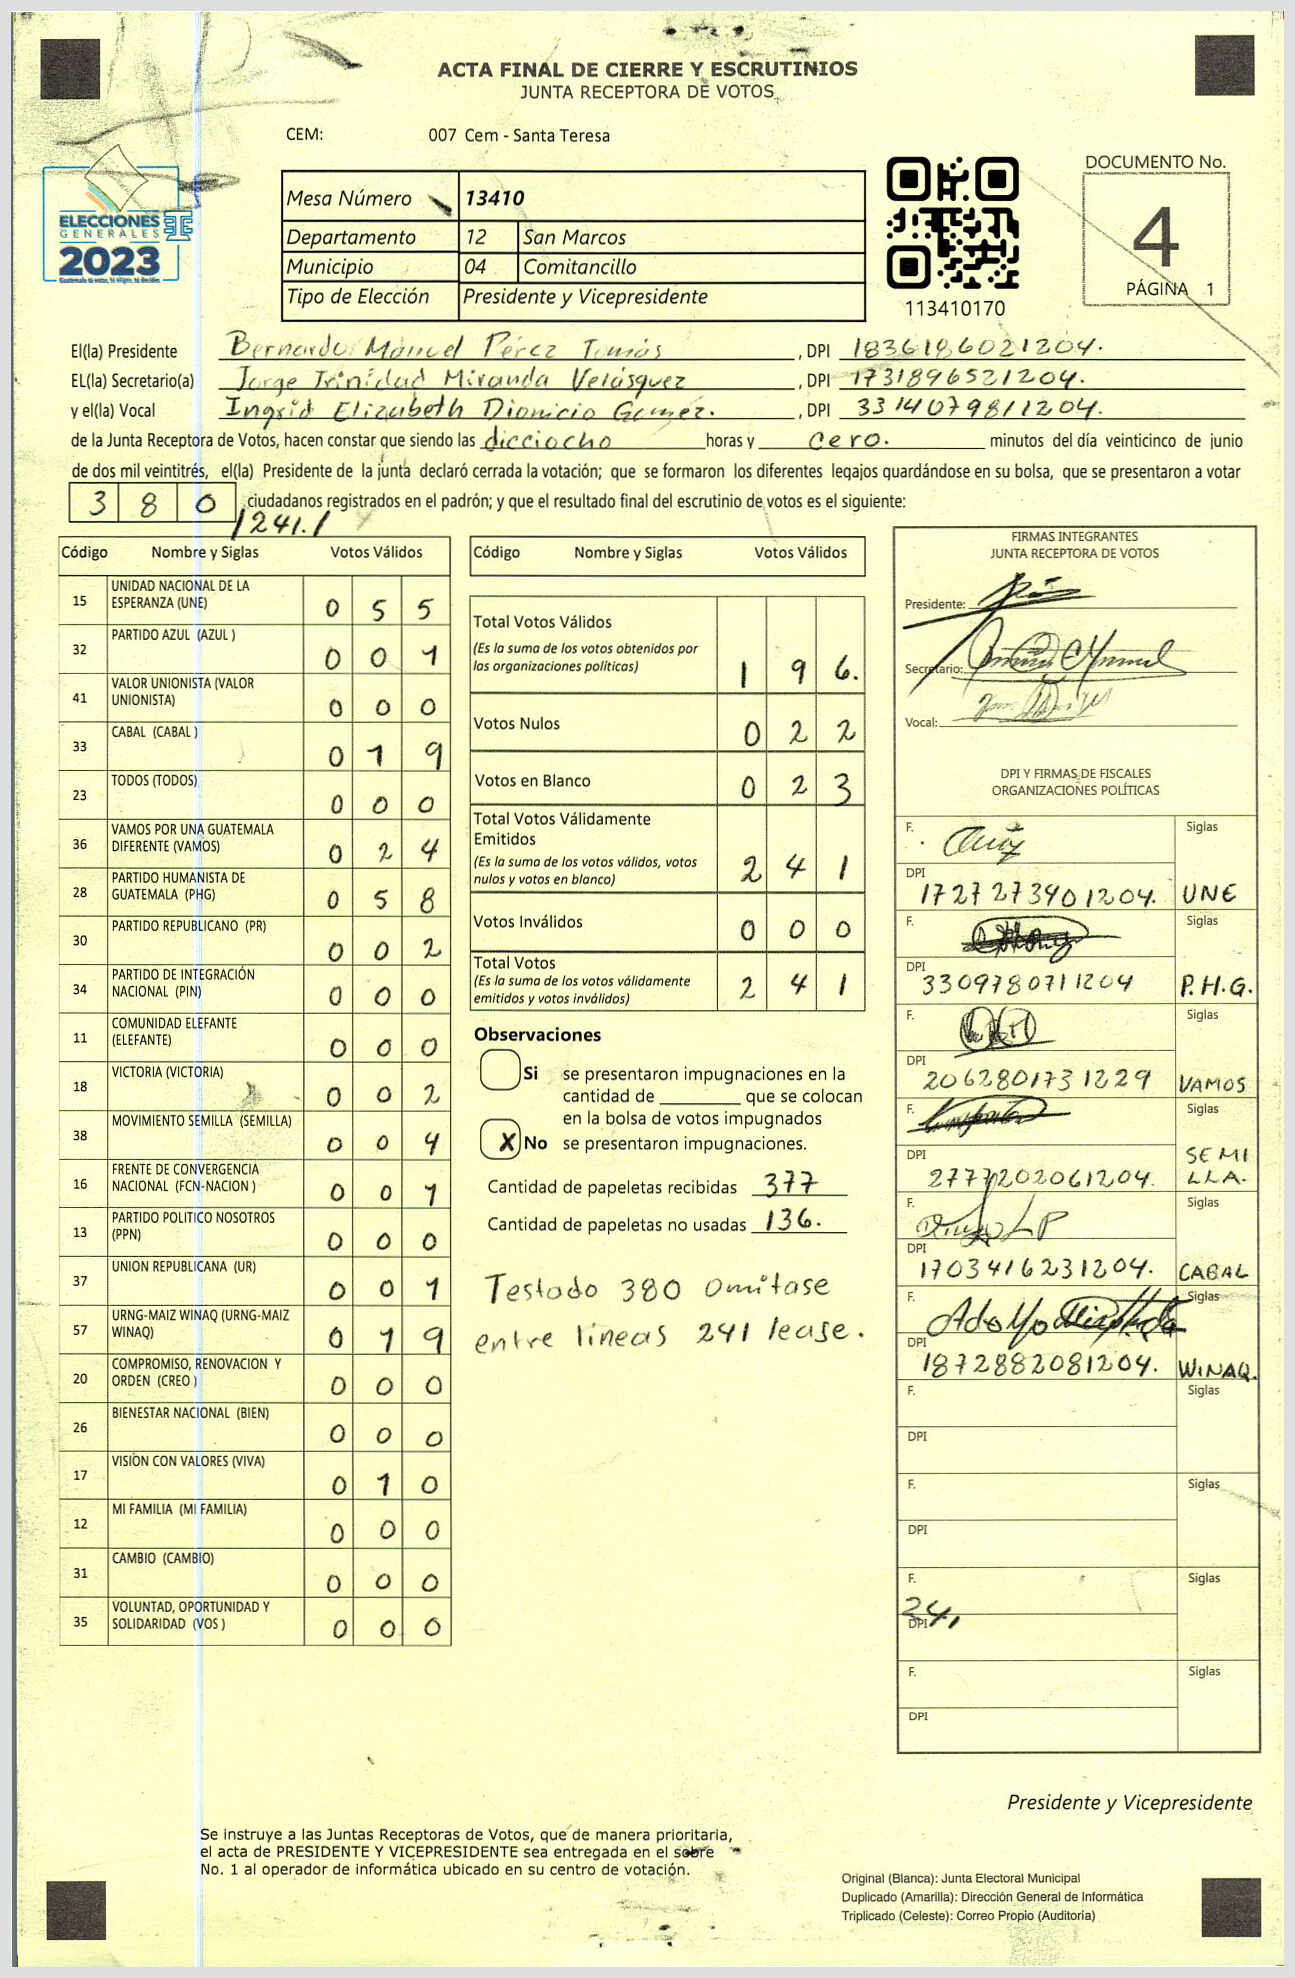 ACTA FINAL DE CIERRE Y ESCRUTINIOS
JUNTA RECEPTORA DE VOTOS
CEM: 007 Cem - Santa Teresa
ELECCIONES
GENERALES
2023
Guatemala tú votas, tú eliges, tú decides
Mesa Número 13410
Departamento 12 San Marcos
Municipio 04 Comitancillo
Tipo de Elección Presidente y Vicepresidente
113410170
DOCUMENTO No.
4
PÁGINA 1
El(la) Presidente Bernardo Manuel Pérez Tomás, DPI 1836186021204.
EL(la) Secretario(a) Jorge Trinidad Miranda Velásquez, DPI 1731896521204.
y el(la) Vocal Ingrid Elizabeth Dionicio Gomez., DPI 3314079811204.
de la Junta Receptora de Votos, hacen constar que siendo las dicciocho horas y cero. minutos del día veinticinco de junio
de dos mil veintitrés, el(la) Presidente de la junta declaró cerrada la votación; que se formaron los diferentes legajos guardándose en su bolsa, que se presentaron a votar
3 8 0 ciudadanos registrados en el padrón; y que el resultado final del escrutinio de votos es el siguiente:
/241./
Código Nombre y Siglas Votos Válidos
15 UNIDAD NACIONAL DE LA ESPERANZA (UNE) 0 5 5
32 PARTIDO AZUL (AZUL ) 0 0 1
41 VALOR UNIONISTA (VALOR UNIONISTA) 0 0 0
33 CABAL (CABAL ) 0 1 9
23 TODOS (TODOS) 0 0 0
36 VAMOS POR UNA GUATEMALA DIFERENTE (VAMOS) 0 2 4
28 PARTIDO HUMANISTA DE GUATEMALA (PHG) 0 5 8
30 PARTIDO REPUBLICANO (PR) 0 0 2
34 PARTIDO DE INTEGRACIÓN NACIONAL (PIN) 0 0 0
11 COMUNIDAD ELEFANTE (ELEFANTE) 0 0 0
18 VICTORIA (VICTORIA) 0 0 2
38 MOVIMIENTO SEMILLA (SEMILLA) 0 0 4
16 FRENTE DE CONVERGENCIA NACIONAL (FCN-NACION ) 0 0 1
13 PARTIDO POLITICO NOSOTROS (PPN) 0 0 0
37 UNION REPUBLICANA (UR) 0 0 1
57 URNG-MAIZ WINAQ (URNG-MAIZ WINAQ) 0 1 9
20 COMPROMISO, RENOVACION Y ORDEN (CREO ) 0 0 0
26 BIENESTAR NACIONAL (BIEN) 0 0 0
17 VISIÓN CON VALORES (VIVA) 0 1 0
12 MI FAMILIA (MI FAMILIA) 0 0 0
31 CAMBIO (CAMBIO) 0 0 0
35 VOLUNTAD, OPORTUNIDAD Y SOLIDARIDAD (VOS ) 0 0 0
Código Nombre y Siglas Votos Válidos
Total Votos Válidos 1 9 6.
(Es la suma de los votos obtenidos por
las organizaciones políticas)
Votos Nulos 0 2 2
Votos en Blanco 0 2 3
Total Votos Válidamente
Emitidos 2 4 1
(Es la suma de los votos válidos, votos
nulos y votos en blanco)
Votos Inválidos 0 0 0
Total Votos 2 4 1
(Es la suma de los votos válidamente
emitidos y votos inválidos)
Observaciones
Si se presentaron impugnaciones en la
cantidad de ________ que se colocan
en la bolsa de votos impugnados
X No se presentaron impugnaciones.
Cantidad de papeletas recibidas 377
Cantidad de papeletas no usadas 136.
Testado 380 omitase
entre lineas 241 lease.
FIRMAS INTEGRANTES
JUNTA RECEPTORA DE VOTOS
Presidente:
Secretario:
Vocal:
DPI Y FIRMAS DE FISCALES
ORGANIZACIONES POLÍTICAS
F. Siglas
DPI 1727273401204. UNE
F. Siglas
DPI 3309780711204 P.H.G.
F. Siglas
DPI 2062801731229 VAMOS
F. Siglas
DPI 2777202061204. SEMI
LLA.
F. Siglas
DPI 1703416231204. CABAL
F. Adolfo Siglas
DPI 1872882081204. WINAQ.
F. Siglas
DPI
F. Siglas
DPI
F. Siglas
241
DPI
F. Siglas
DPI
Presidente y Vicepresidente
Se instruye a las Juntas Receptoras de Votos, que de manera prioritaria,
el acta de PRESIDENTE Y VICEPRESIDENTE sea entregada en el sobre
No. 1 al operador de informática ubicado en su centro de votación.
Original (Blanca): Junta Electoral Municipal
Duplicado (Amarilla): Dirección General de Informática
Triplicado (Celeste): Correo Propio (Auditoria)